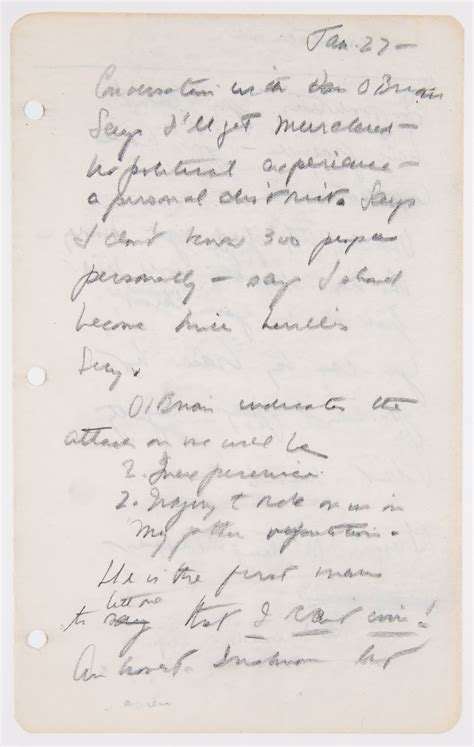 Jan. 27 —
Conversation with Dan O'Brien
Says I'll get murdered —
No political experience —
a personal district. Says
I don't know 300 people
personally — says I should
become Mike Neville's
Secy.
O'Brien indicates the
attack on me will be
1. Inexperience
2. Trying to ride on in
My father reputation.
He is the first man
to say let me that I can't win!
An honest Irishman but